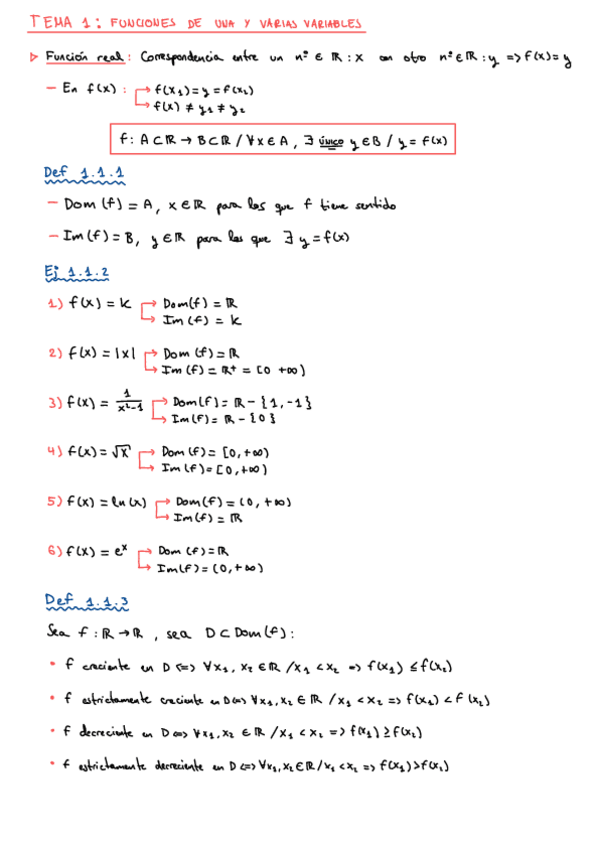 TEMA 1: FUNCIONES DE UNA Y VARIAS VARIABLES
▷ Función real: Correspondencia entre un nº ∈ ℝ : x con otro nº ∈ ℝ : y => f(x) = y
— En f(x): → f(x₁) = y = f(x₂)
→ f(x) ≠ y₁ ≠ y₂
f: A ⊂ ℝ → B ⊂ ℝ / ∀x ∈ A, ∃ único y ∈ B / y = f(x)
Def 1.1.1
— Dom (f) = A, x ∈ ℝ para los que f tiene sentido
— Im (f) = B, y ∈ ℝ para los que ∃ y = f(x)
Ej 1.1.2
1) f(x) = k → Dom(f) = ℝ
→ Im (f) = k
2) f(x) = |x| → Dom (f) = ℝ
→ Im (f) = ℝ⁺ = [0 +∞)
3) f(x) = 1/(x²-1) → Dom(f) = ℝ - {1, -1}
→ Im(f) = ℝ - {0}
4) f(x) = √x → Dom (f) = [0, +∞)
→ Im (f) = [0, +∞)
5) f(x) = ln(x) → Dom(f) = (0, +∞)
→ Im(f) = ℝ
6) f(x) = eˣ → Dom (f) = ℝ
→ Im(f) = (0, +∞)
Def 1.1.3
Sea f: ℝ → ℝ, sea D ⊂ Dom(f):
• f creciente en D <=> ∀x₁, x₂ ∈ ℝ / x₁ < x₂ => f(x₁) ≤ f(x₂)
• f estrictamente creciente en D <=> ∀x₁, x₂ ∈ ℝ / x₁ < x₂ => f(x₁) < f(x₂)
• f decreciente en D <=> ∀x₁, x₂ ∈ ℝ / x₁ < x₂ => f(x₁) ≥ f(x₂)
• f estrictamente decreciente en D <=> ∀x₁, x₂ ∈ ℝ / x₁ < x₂ => f(x₁) > f(x₂)